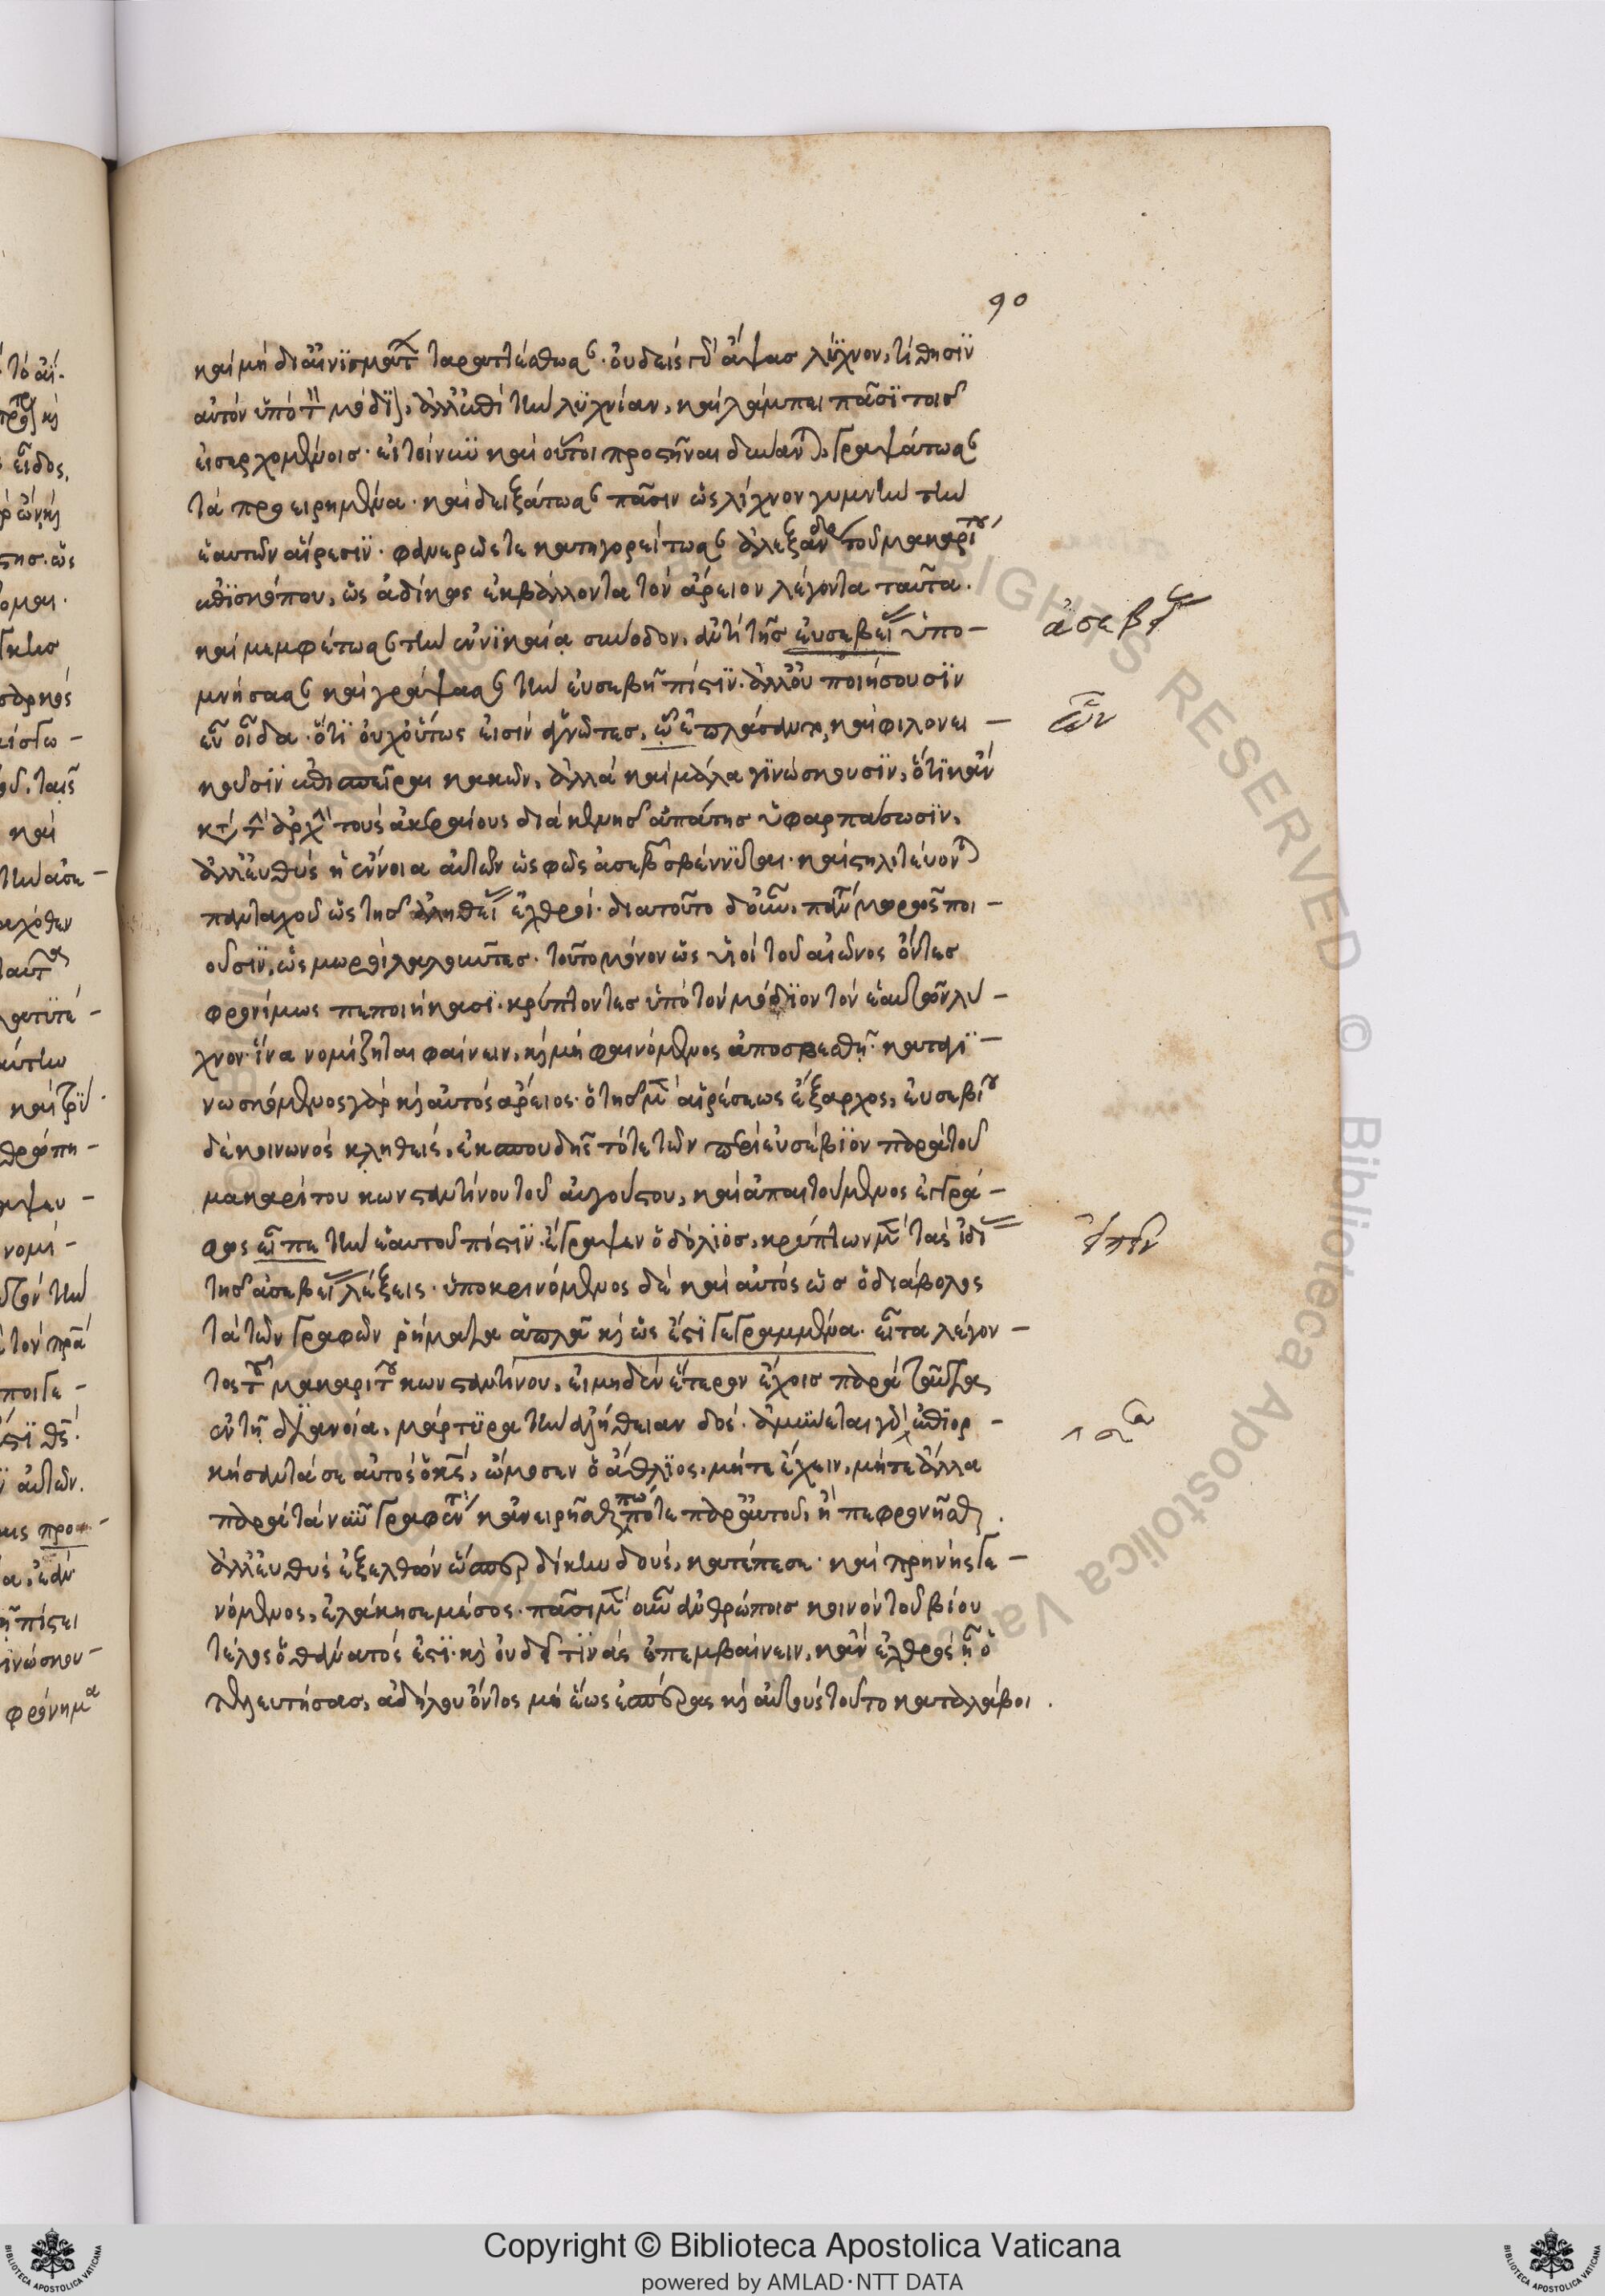 90
καὶ μὴ δι' αἰνιγμάτων ταραττέσθωσαν. οὐδεὶς γὰρ ἅψας λύχνον, τίθησιν
αὐτὸν ὑπὸ τὸν μόδιον, ἀλλ' ἐπὶ τὴν λυχνίαν, καὶ λάμπει πᾶσι τοῖς
εἰσερχομένοις. εἰ τοίνυν καὶ οὗτοι προστῆναι δύνανται, γραψάτωσαν
τὰ προειρημένα. καὶ δειξάτωσαν πᾶσιν ὡς λύχνον γυμνὴν τὴν
ἑαυτῶν αἵρεσιν. φανερῶς τε κατηγορείτωσαν ἀλεξάνδρου τοῦ μακαρίτου
ἐπισκόπου, ὡς ἀδίκως ἐκβάλλοντα τὸν ἄρειον λέγοντα ταῦτα.
καὶ μεμφέτωσαν τὴν ἐν νικαίᾳ σύνοδον, ἀντὶ τῆς εὐσεβείας ὑπο-
μνήσασαν καὶ γράψασαν τὴν εὐσεβῆ πίστιν. ἀλλ' οὐ ποιήσουσιν
εὖ οἶδα. ὅτι οὐχ οὕτως εἰσὶν ἀγνῶτες, ὧν ἐπλάσαντο, καὶ φιλονει-
κοῦσιν ἐπισπεῖραι κακῶν, ἀλλὰ καὶ μάλα γινώσκουσιν, ὅτι κἂν
κατὰ τὴν ἀρχὴν τοὺς ἀκεραίους διὰ κενῆς ἀπάτης ὑφαρπάσωσιν,
ἀλλ' εὐθὺς ἡ ἔννοια αὐτῶν ὡς φῶς ἀσεβῶν σβέννυται. καὶ στηλιτεύονται
πανταχοῦ ὡς τῆς ἀληθείας ἐχθροί. διὰ τοῦτο γοῦν, πάντα μωρῶς ποι-
οῦσιν, ὡς μωροὶ λαλοῦντες. τοῦτο μόνον ὡς υἱοὶ τοῦ αἰῶνος ὄντες
φρονίμως πεποιήκασι. κρύπτοντες ὑπὸ τὸν μόδιον τὸν ἑαυτῶν λύ-
χνον. ἵνα νομίζηται φαίνειν, καὶ μὴ φαινόμενος ἀποσβεσθῇ. καταγι-
νωσκόμενος γὰρ καὶ αὐτὸς ἄρειος. ὁ τῆς μὲν αἱρέσεως ἔξαρχος, εὐσεβίου
δὲ κοινωνὸς κληθεὶς, ἐκ σπουδῆς τότε τῶν περὶ εὐσέβιον παρὰ τοῦ
μακαρίτου κωνσταντίνου τοῦ αὐγούστου, καὶ ἀπαιτούμενος ἐγγρά-
φως εἶπε τὴν ἑαυτοῦ πίστιν. ἔγραψεν ὁ δόλιος, κρύπτων μὲν τὰς ἰδίας
τῆς ἀσεβείας λέξεις. ὑποκρινόμενος δὲ καὶ αὐτὸς ὡς ὁ διάβολος
τὰ τῶν γραφῶν ῥήματα ἁπλᾶ καὶ ὡς ἔστι γεγραμμένα. εἶτα λέγον-
τος τοῦ μακαρίτου κωνσταντίνου, εἰ μηδὲν ἕτερον ἔχοις παρὰ ταῦτα
ἐν τῇ διανοίᾳ, μάρτυρα τὴν ἀλήθειαν δός. ἀμύνεται γὰρ ἐπιορ-
κήσαντά σε αὐτὸς ὁ κύριος, ὤμοσεν ὁ ἄθλιος, μήτε ἔχειν, μήτε ἄλλα
παρὰ τὰ νῦν γραφέντα κἂν εἰρῆσθαι πώποτε παρ' αὐτοῦ, ἢ πεφρονῆσθαι.
ἀλλ' εὐθὺς ἐξελθὼν ὥσπερ δίκην δοὺς, κατέπεσε. καὶ πρηνὴς γε-
νόμενος, ἐλάκησε μέσος. πᾶσι μὲν οὖν ἀνθρώποις κοινὸν τοῦ βίου
τέλος ὁ θάνατός ἐστι. καὶ οὐ δεῖ τινὰς ἐπεμβαίνειν, κἂν ἐχθρὸς ᾖ ὁ
τελευτήσας, ἀδήλου ὄντος μὴ ἕως ἑσπέρας καὶ αὐτοὺς τοῦτο καταλάβοι.
ἀσεβείας
ὧν
εἰπεῖν
Copyright © Biblioteca Apostolica Vaticana
powered by AMLAD·NTT DATA